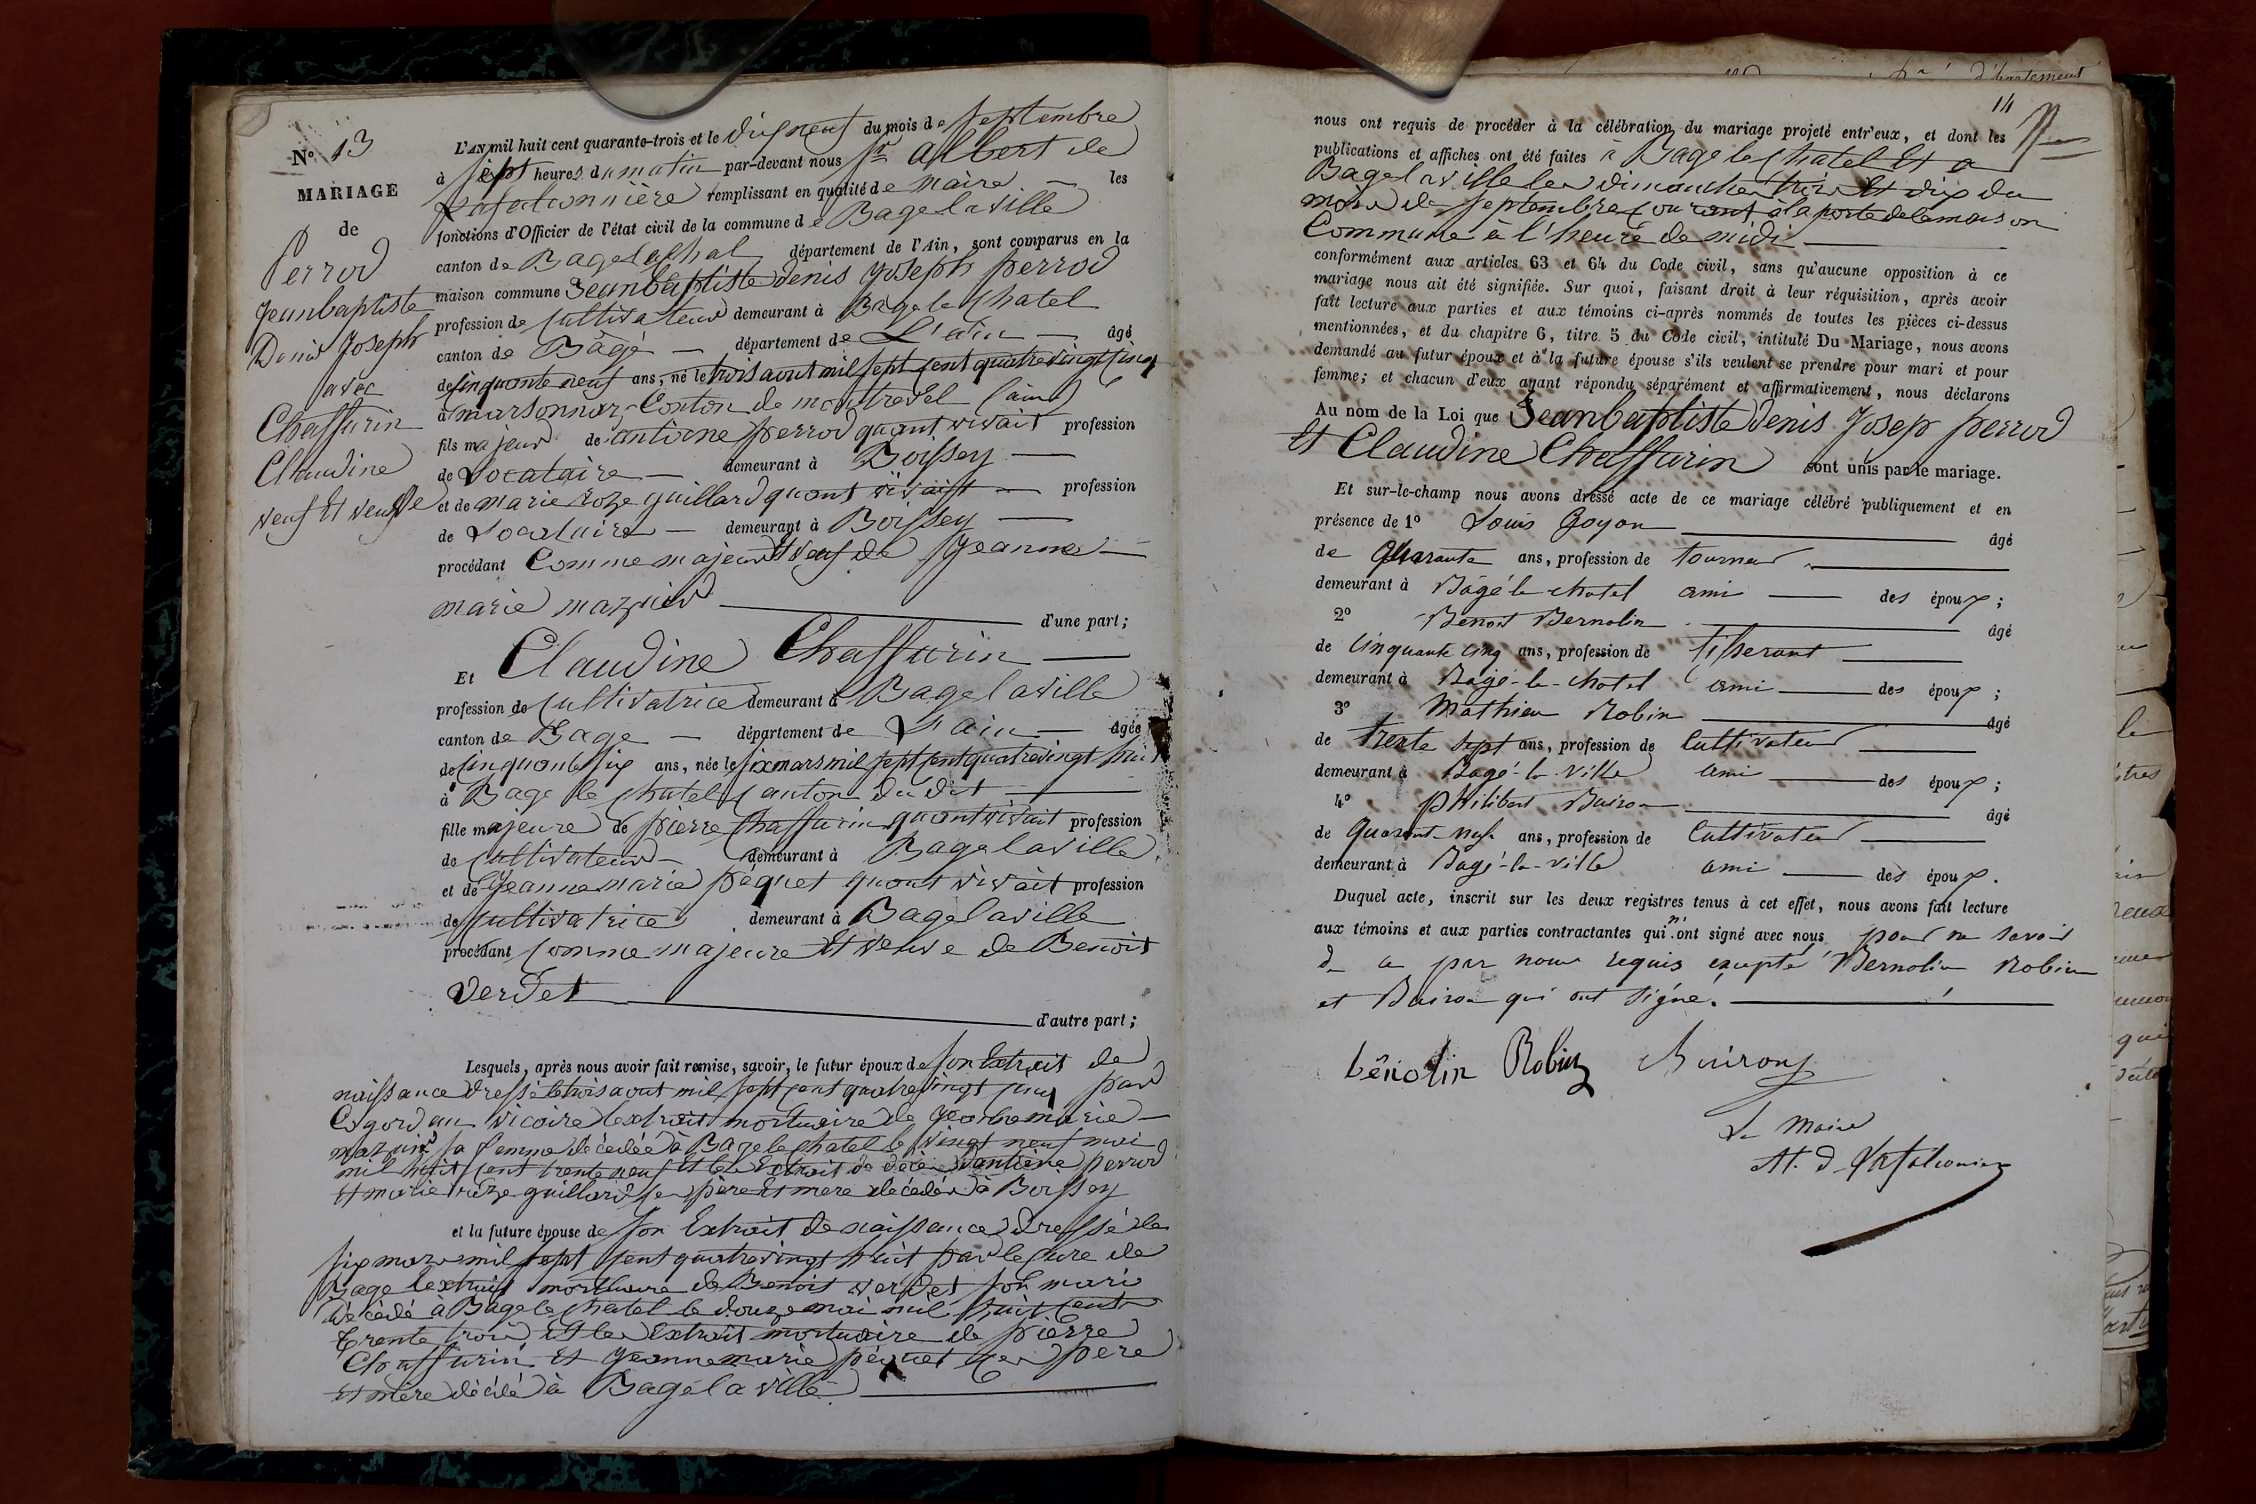 N° 13
MARIAGE
de
Perrod
Jeanbaptiste
Denis Joseph
avec
Chaffurin
Claudine
veuf Et veuve
L'AN mil huit cent quarante-trois et le dix neuf du mois de septembre
à sept heures du matin par-devant nous Sr albert de
Lafalconnière remplissant en qualité de maire les
fonctions d'Officier de l'état civil de la commune de Bagelaville
canton de Bagelechal département de l'Ain, sont comparus en la
maison commune Jeanbaptiste denis joseph perrod
profession de Cultivateur demeurant à Bage le Chatel
canton de Bagé département de L'ain âgé
de cinquante neuf ans, né le trois aout mil sept cent quatre vingt cinq
à marsonnaz Conton de montrevel (ain)
fils majeur de antoine perrod quant vivait profession
de Locataire demeurant à Boissey
et de marie roze guillard quant vivait profession
de Locataire demeurant à Boissey
procédant Comme majeur Et veuf de Jeanne
marie mazuier
d'une part;
Et Claudine Chaffurin
profession de Cultivatrice demeurant à Bagelaville
canton de Bage département de L'ain âgée
de cinquante six ans, née le six mars mil sept cent quatre vingt huit
à Bage le chatel canton du dit
fille majeure de pierre Chaffurin quant vivait profession
de Cultivateur demeurant à Bagelaville
et de Jeanne marie péquet quant vivait profession
de Cultivatrice demeurant à Bagelaville
procédant Comme majeure Et veuve de Benoit
Verdet
d'autre part;
Lesquels, après nous avoir fait remise, savoir, le futur époux de son Extrait de
naissance dressé le trois aout mil sept cent quatre vingt cinq par
vicaire lextrait mortuaire de Jeanne marie
mazuier sa femme décédée à Bage le chatel le vingt neuf mai
mil huit cent trente neuf Et les Extrait de décès dantoine perrod
Et marie roze guillard ses père Et mere décédés à Boissey
et la future épouse de son Extrait de naissance dressé le
six mars mil sept cent quatre vingt huit par le Cure de
Bage lextrait mortuaire de Benoit verdet son mari
décédé à Bage le chatel le douze mai mil huit cent
trente trois Et les Extrait mortuaire de pierre
Chaffurin Et Jeanne marie péquet ses pere
Et mère décédé à Bagé la ville
14
nous ont requis de procéder à la célébration du mariage projeté entr'eux, et dont les
publications et affiches ont été faites à Bage le Chatel Et a
Bagelaville les dimanches trois Et dix du
mois de septembre courant à la porte de la maison
Commune à l'heure de midi
conformément aux articles 63 et 64 du Code civil, sans qu'aucune opposition à ce
mariage nous ait été signifiée. Sur quoi, faisant droit à leur réquisition, après avoir
fait lecture aux parties et aux témoins ci-après nommés de toutes les pièces ci-dessus
mentionnées, et du chapitre 6, titre 5 du Code civil, intitulé Du Mariage, nous avons
demandé au futur époux et à la future épouse s'ils veulent se prendre pour mari et pour
femme; et chacun d'eux ayant répondu séparément et affirmativement, nous déclarons
Au nom de la Loi que Jeanbaptiste denis Josep perrod
Et Claudine Chaffurin sont unis par le mariage.
Et sur-le-champ nous avons dressé acte de ce mariage célébré publiquement et en
présence de 1° Louis Goyon âgé
de Quarante ans, profession de tourneur
demeurant à Bâgé le chatel ami des époux;
2° Benoit Bernolin âgé
de Cinquante cinq ans, profession de tisserant
demeurant à Bâgé-le-chatel ami des époux;
3° Mathieu Robin âgé
de trente sept ans, profession de Cultivateur
demeurant à Bagé-la-Ville ami des époux;
4° philibert Buiron âgé
de Quarante neuf ans, profession de Cultivateur
demeurant à Bagé-la-ville ami des époux.
Duquel acte, inscrit sur les deux registres tenus à cet effet, nous avons fait lecture
aux témoins et aux parties contractantes qui n'ont signé avec nous pour ne savoir
de ce par nous requis éxcepté Bernolin Robin
et Buiron qui ont signé.
bênolin Robin Buiron
Le Maire
At. d. Lafalconnière